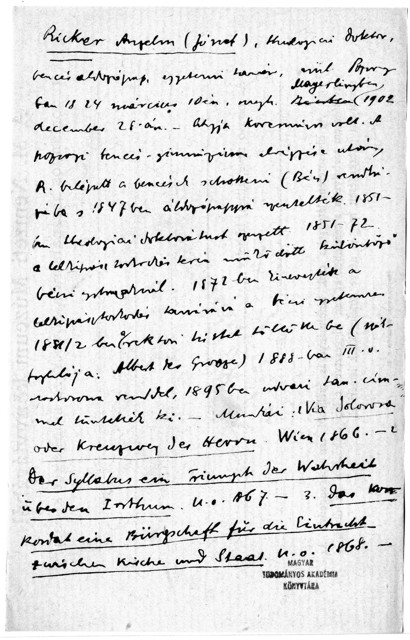 Ricker Anzelm (József), theologiai doktor,
benczés áldozópap, egyetemi tanár, szül. Pozsony
Magerlingben
ban 1824 március 10én, megh. Bécsben (1902
december 28-án. – Atyja kormányos volt. A
pozsonyi benczés-gimnázium elvégzése után,
R. belépett a benczések schotteni (Bécs) rendhá-
zába s 1847ben áldozópappá szentelték. 1851-
ben theologiai doktorátust nyert 1851-72
a lelkipásztorkodás terén működött különböző
bécsi 1872ben kinevezték a
lelkipásztorkodás tanárává a bécsi egyetemre
1881/2 ben a rektori tisztet töltötte be
Albert des Grosse) 1888-ban III. o.
vaskorona renddel, 1895ben udvari tan. cím-
mel tüntették ki. – Munkái: 1. Via Dolorosa
oder Kreuzweg des Herrn. Wien 1866. – 2
Der Syllabus ein Triumph der Wahrheit
über den Irrthum. U.o. 1867. – 3. Das Kon-
kordat eine Bürgschaft für die Eintracht
zwischen Kirche und Staat. U.o. 1868. –
MAGYAR
TUDOMÁNYOS AKADÉMIA
KÖNYVTÁRA